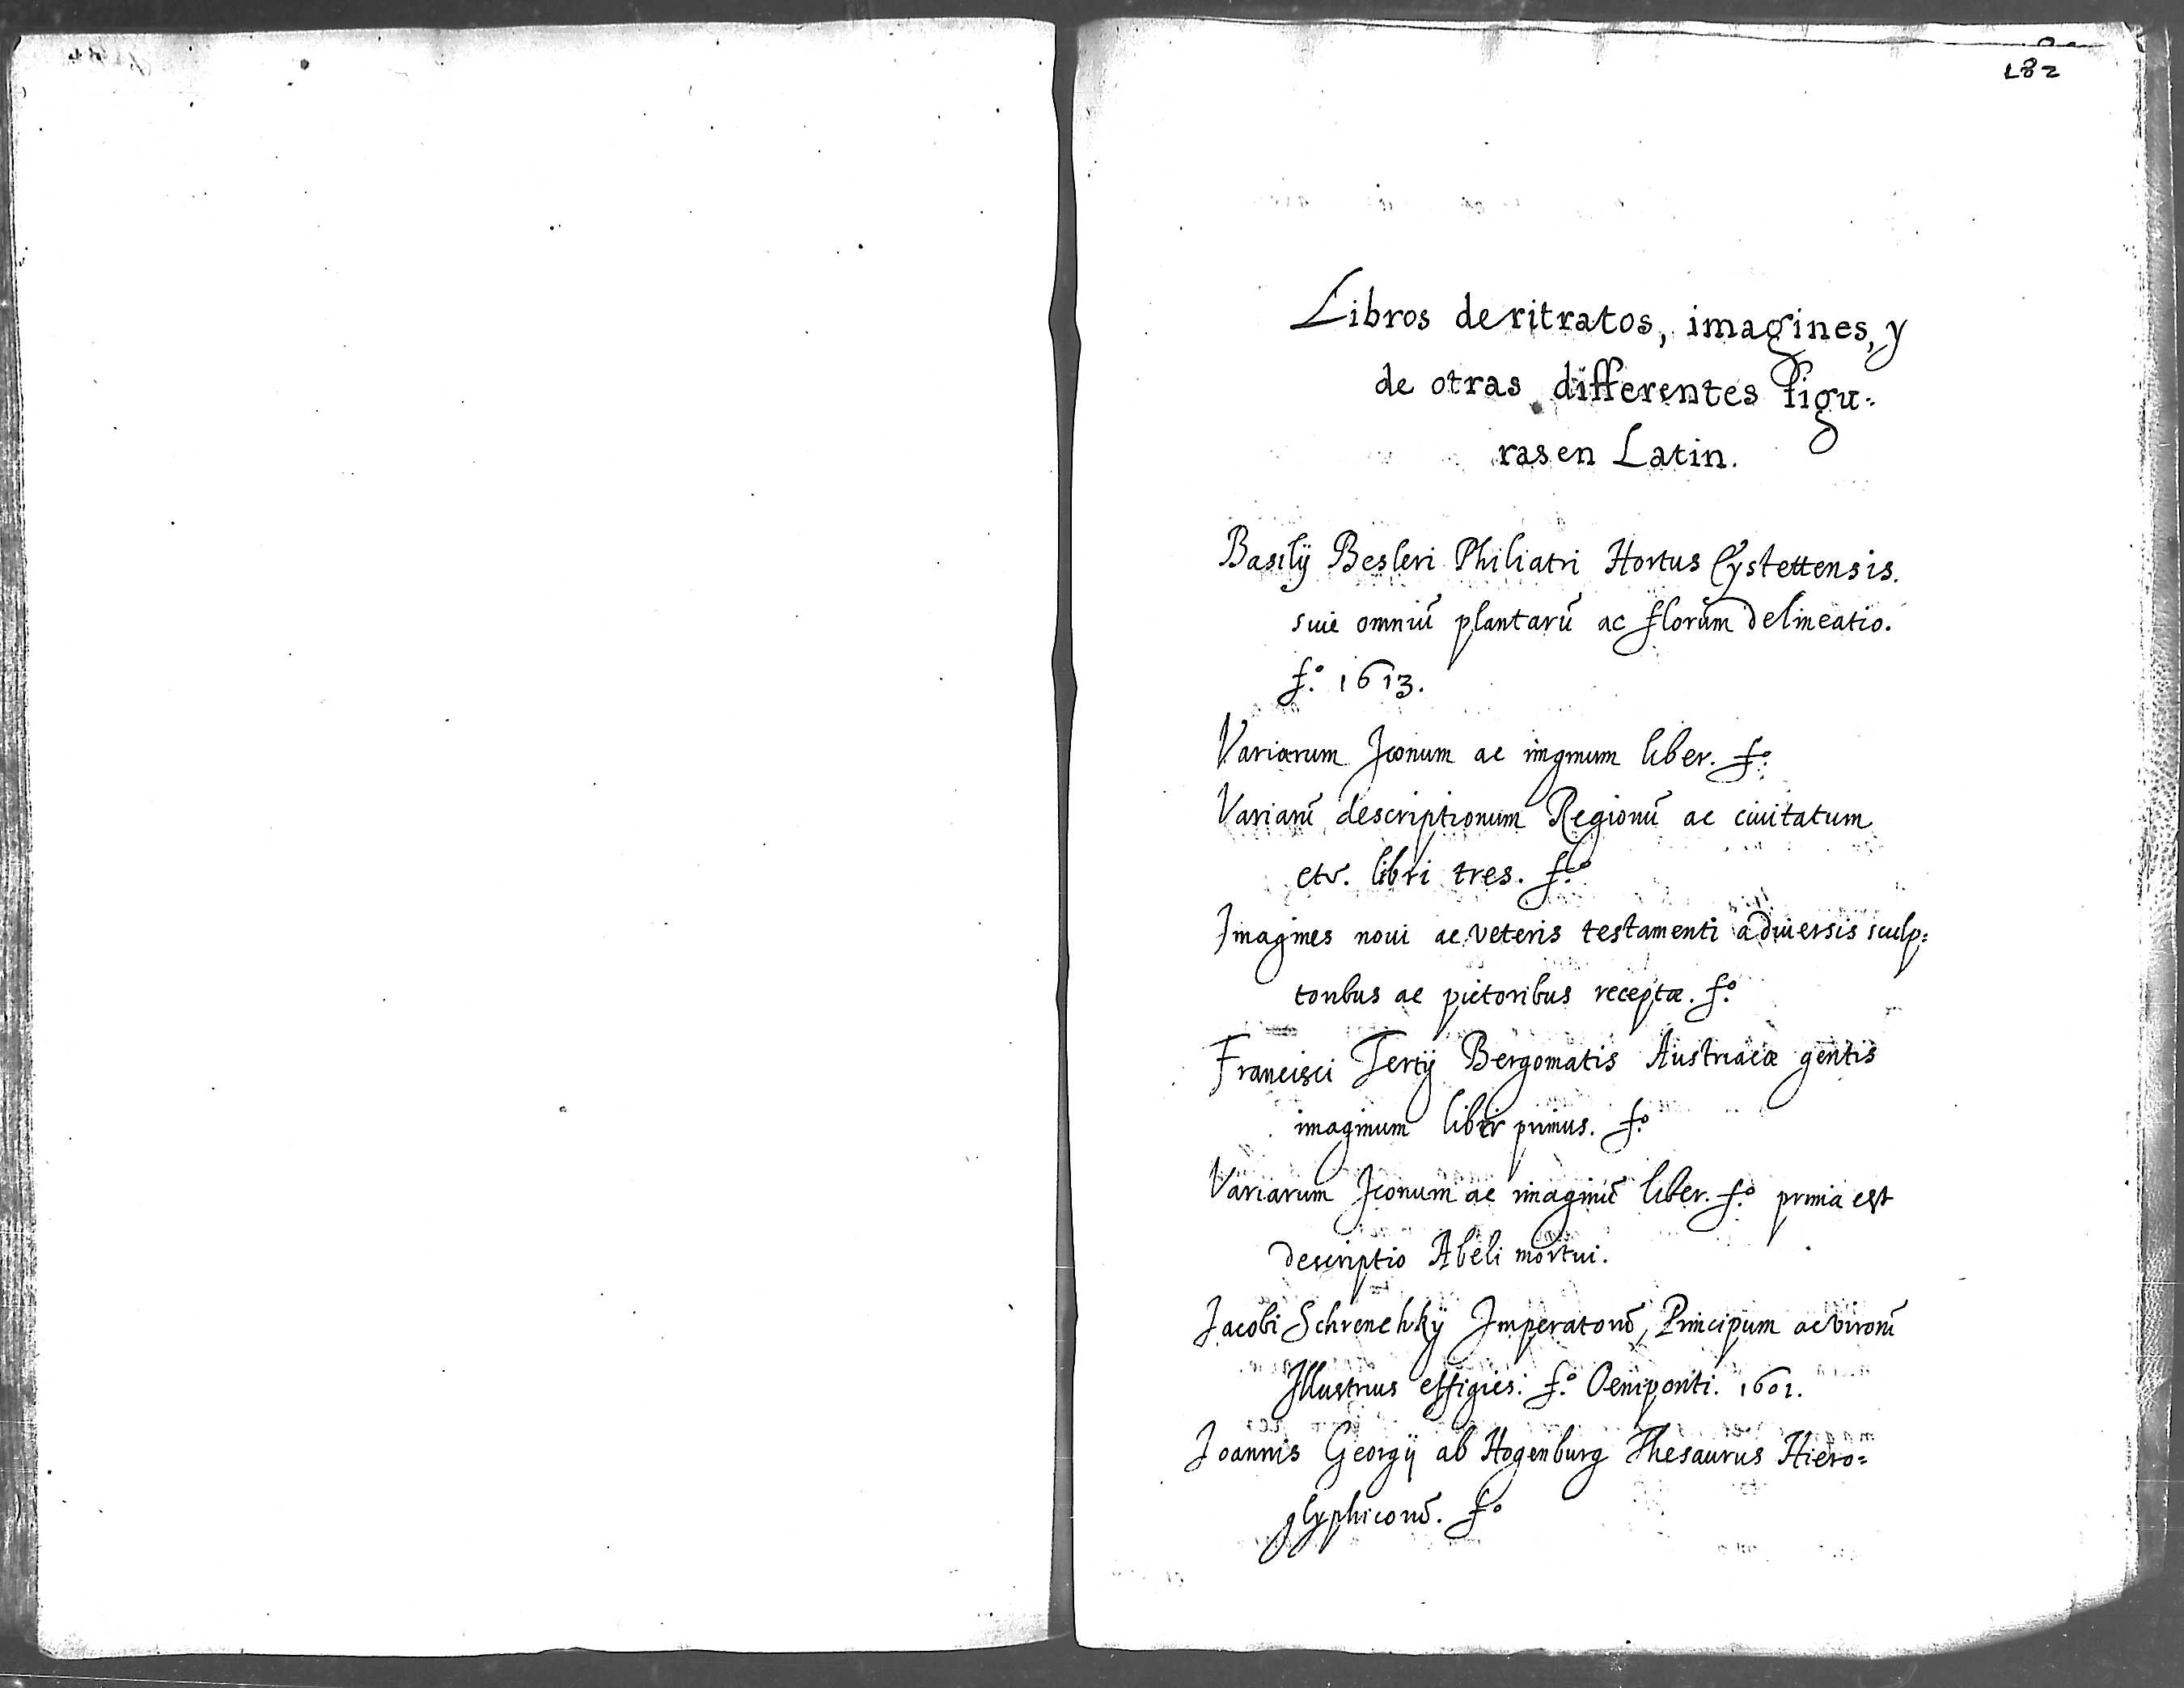 182
Libros de ritratos, imagines, y
de otras differentes figu-
ras en Latin.
Basilij Besleri Philiatri Hortus Eystettensis.
siue omniũ plantarũ ac florum delineatio.
f.º 1613.
Variarum Iconum ac imginum liber. f.º
Variarũ descriptionum Regionũ ac ciuitatum
etc. libri tres. f.º
Imagines noui ac veteris testamenti a diuersis sculp=
toribus ac pictoribus receptæ. f.º
Francisci Tertij Bergomatis Austriacæ gentis
imaginum liber primus. f.º
Variarum Iconum ac imaginũ liber. f.º prima est
descriptio Abeli mortui.
Jacobi Schrenchkij Imperatorũ, Principum ac virorũ
Illustrius effigies. f.º Oeniponti. 1601.
Joannis Georgij ab Hogenburg Thesaurus Hiero=
glyphicorũ. f.º